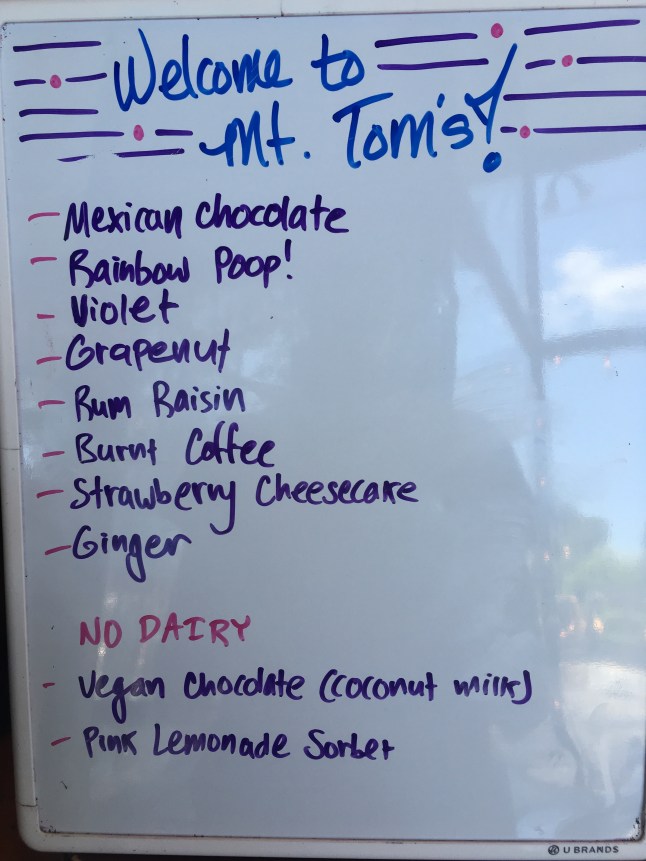 Welcome to
Mt. Tom's!
- Mexican Chocolate
- Rainbow Poop!
- Violet
- Grapenut
- Rum Raisin
- Burnt Coffee
- Strawberry Cheesecake
- Ginger
NO DAIRY
- Vegan Chocolate (coconut milk)
- Pink Lemonade Sorbet
U BRANDS